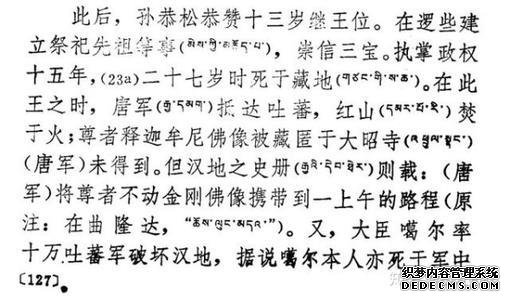 此后，孙恭松恭赞十三岁继王位。在逻些建
立祭祀先祖等事()，崇信三宝。执掌政权
十五年，(23a)二十七岁时死于藏地()。在此
王之时，唐军()抵达吐蕃，红山()焚
于火；尊者释迦牟尼佛像被藏匿于大昭寺()
(唐军)未得到。但汉地之史册()则载：(唐
军)将尊者不动金刚佛像携带到一上午的路程(原
注：在曲隆达，“”)。又，大臣噶尔率
十万吐蕃军破坏汉地，据说噶尔本人亦死于军中
〔127〕。